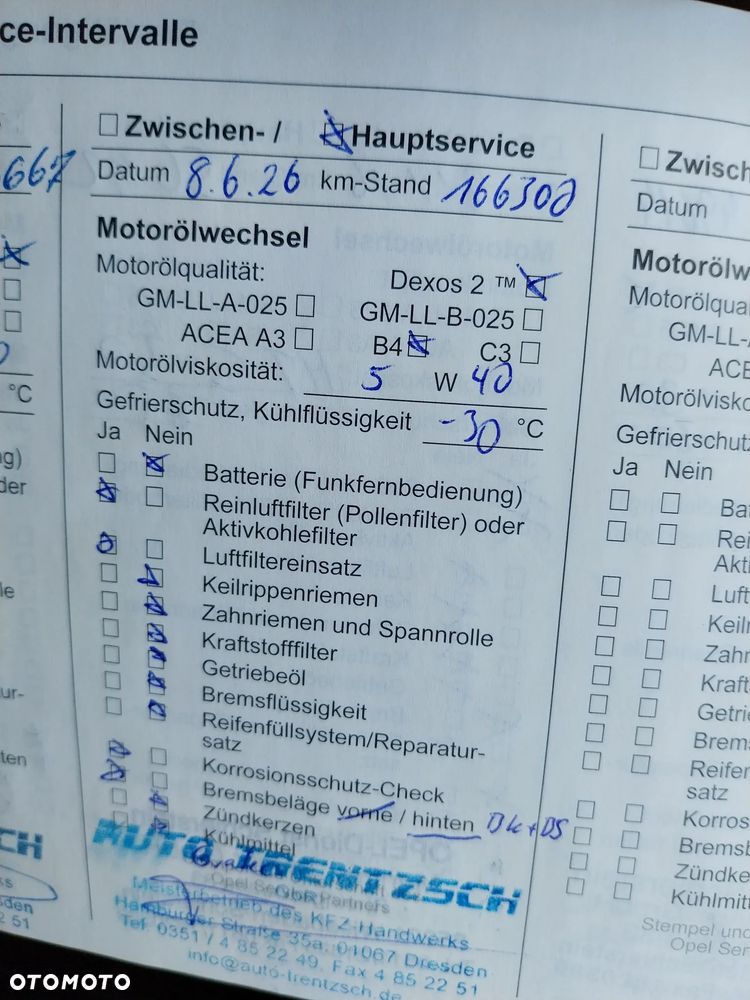 ce-Intervalle
Zwischen- / Hauptservice
Datum 8.6.26 km-Stand 166300
Motorölwechsel
Motorölqualität: Dexos 2 ™
GM-LL-A-025 GM-LL-B-025
ACEA A3 B4 C3
Motorölviskosität: 5 W 40
Gefrierschutz, Kühlflüssigkeit -30 °C
Ja Nein
Batterie (Funkfernbedienung)
Reinluftfilter (Pollenfilter) oder
Aktivkohlefilter
Luftfiltereinsatz
Keilrippenriemen
Zahnriemen und Spannrolle
Kraftstofffilter
Getriebeöl
Bremsflüssigkeit
Reifenfüllsystem/Reparatur-
satz
Korrosionsschutz-Check
Bremsbeläge vorne / hinten
Zündkerzen
Kühlmittel
AUTO TRENTZSCH
GbR
Opel Service Partners
Meisterbetrieb des KFZ-Handwerks
Hamburger Straße 35a, 01067 Dresden
Tel. 0351 / 4 85 22 49, Fax 4 85 22 51
info@auto-trentzsch.de
667
°C
ng)
der
le
ur-
ten
SCH
ks
sden
2 51
Zwisch
Datum
Motorölw
Motorölqua
GM-LL-
ACE
Motorölvisko
Gefrierschutz
Ja Nein
Bat
Rei
Akti
Luft
Keilr
Zahn
Kraft
Getri
Brem
Reifen
satz
Korros
Bremsb
Zündke
Kühlmitt
Stempel und
Opel Ser
OTOMOTO